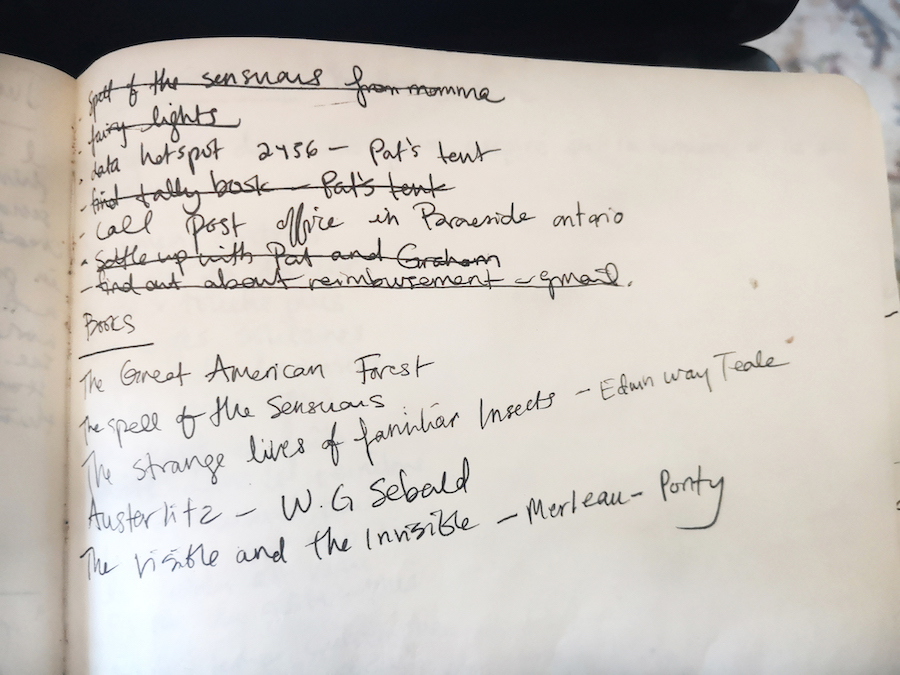 - Spell of the sensuous from momma
- fairy lights
- data hotspot 2456 - Pat's tent
- find tally book - Pat's tent
- call post office in Paraeside ontario
- settle up with Pat and Graham
- find out about reimbursement - gmail.
Books
The Great American Forest
The spell of the Sensuous
The strange lives of familiar Insects - Edwin Way Teale
Austerlitz - W.G Sebald
The visible and the Invisible - Merleau-Ponty